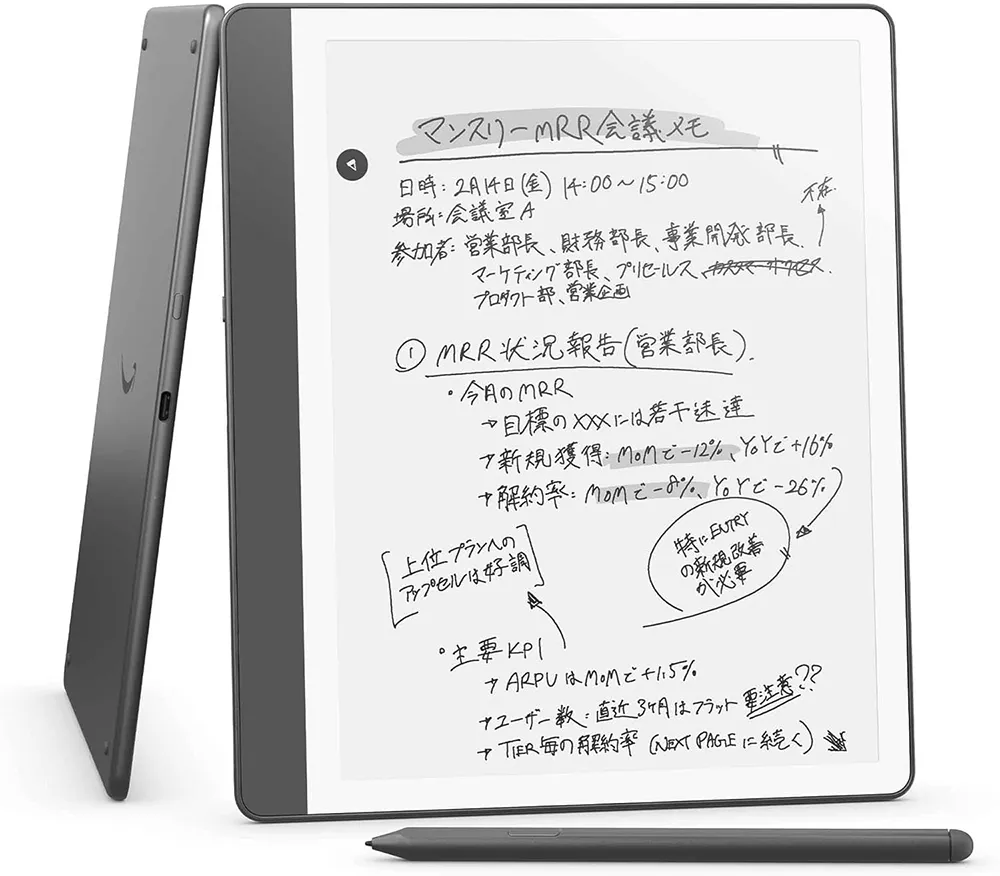 マンスリーMRR会議メモ
日時：2月14日(金) 14:00〜15:00
不在
場所：会議室A
参加者：営業部長、財務部長、事業開発部長、
マーケティング部長、プリセールス、カスタマーサクセス.
プロダクト部、営業企画
① MRR状況報告(営業部長).
・今月のMRR
→目標のXXXには若干未達
→新規獲得：MoMで-12%、YoYで+16%
→解約率：MoMで-8%、YoYで-26%
特にENTRY
の新規改善
が必要
[上位プランへの
アップセルは好調]
・主要KPI
→ARPUはMoMで+1.5%
→ユーザー数：直近3ヶ月はフラット 要注意??
→TIER毎の解約率 (NEXT PAGEに続く)